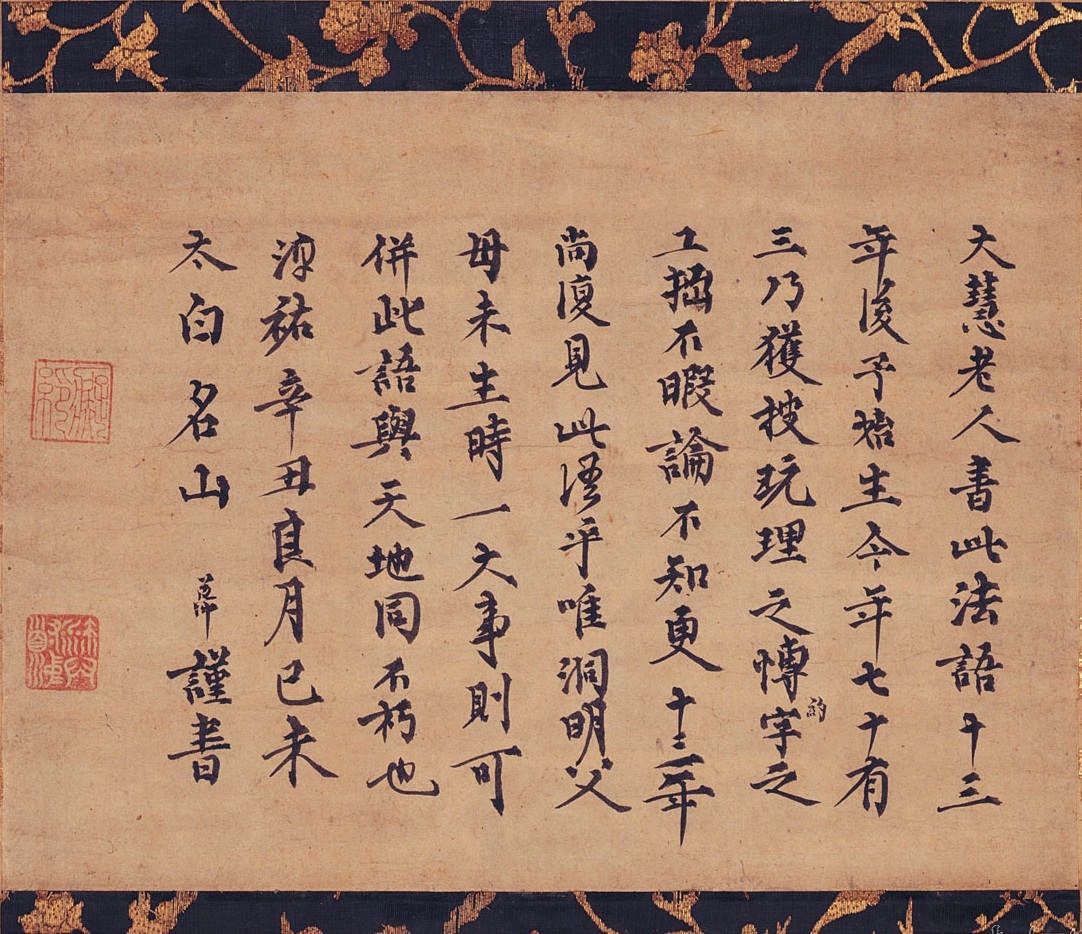 大慧老人書此法語十三
年後予始生今年七十有
三乃獲披玩理之愽約字之
工拙不暇論不知更十三年
尚復見此语乎唯洞明父
母未生時一大事則可
併此語與天地同不朽也
淳祐辛丑良月己未
太白名山 道冲 謹書